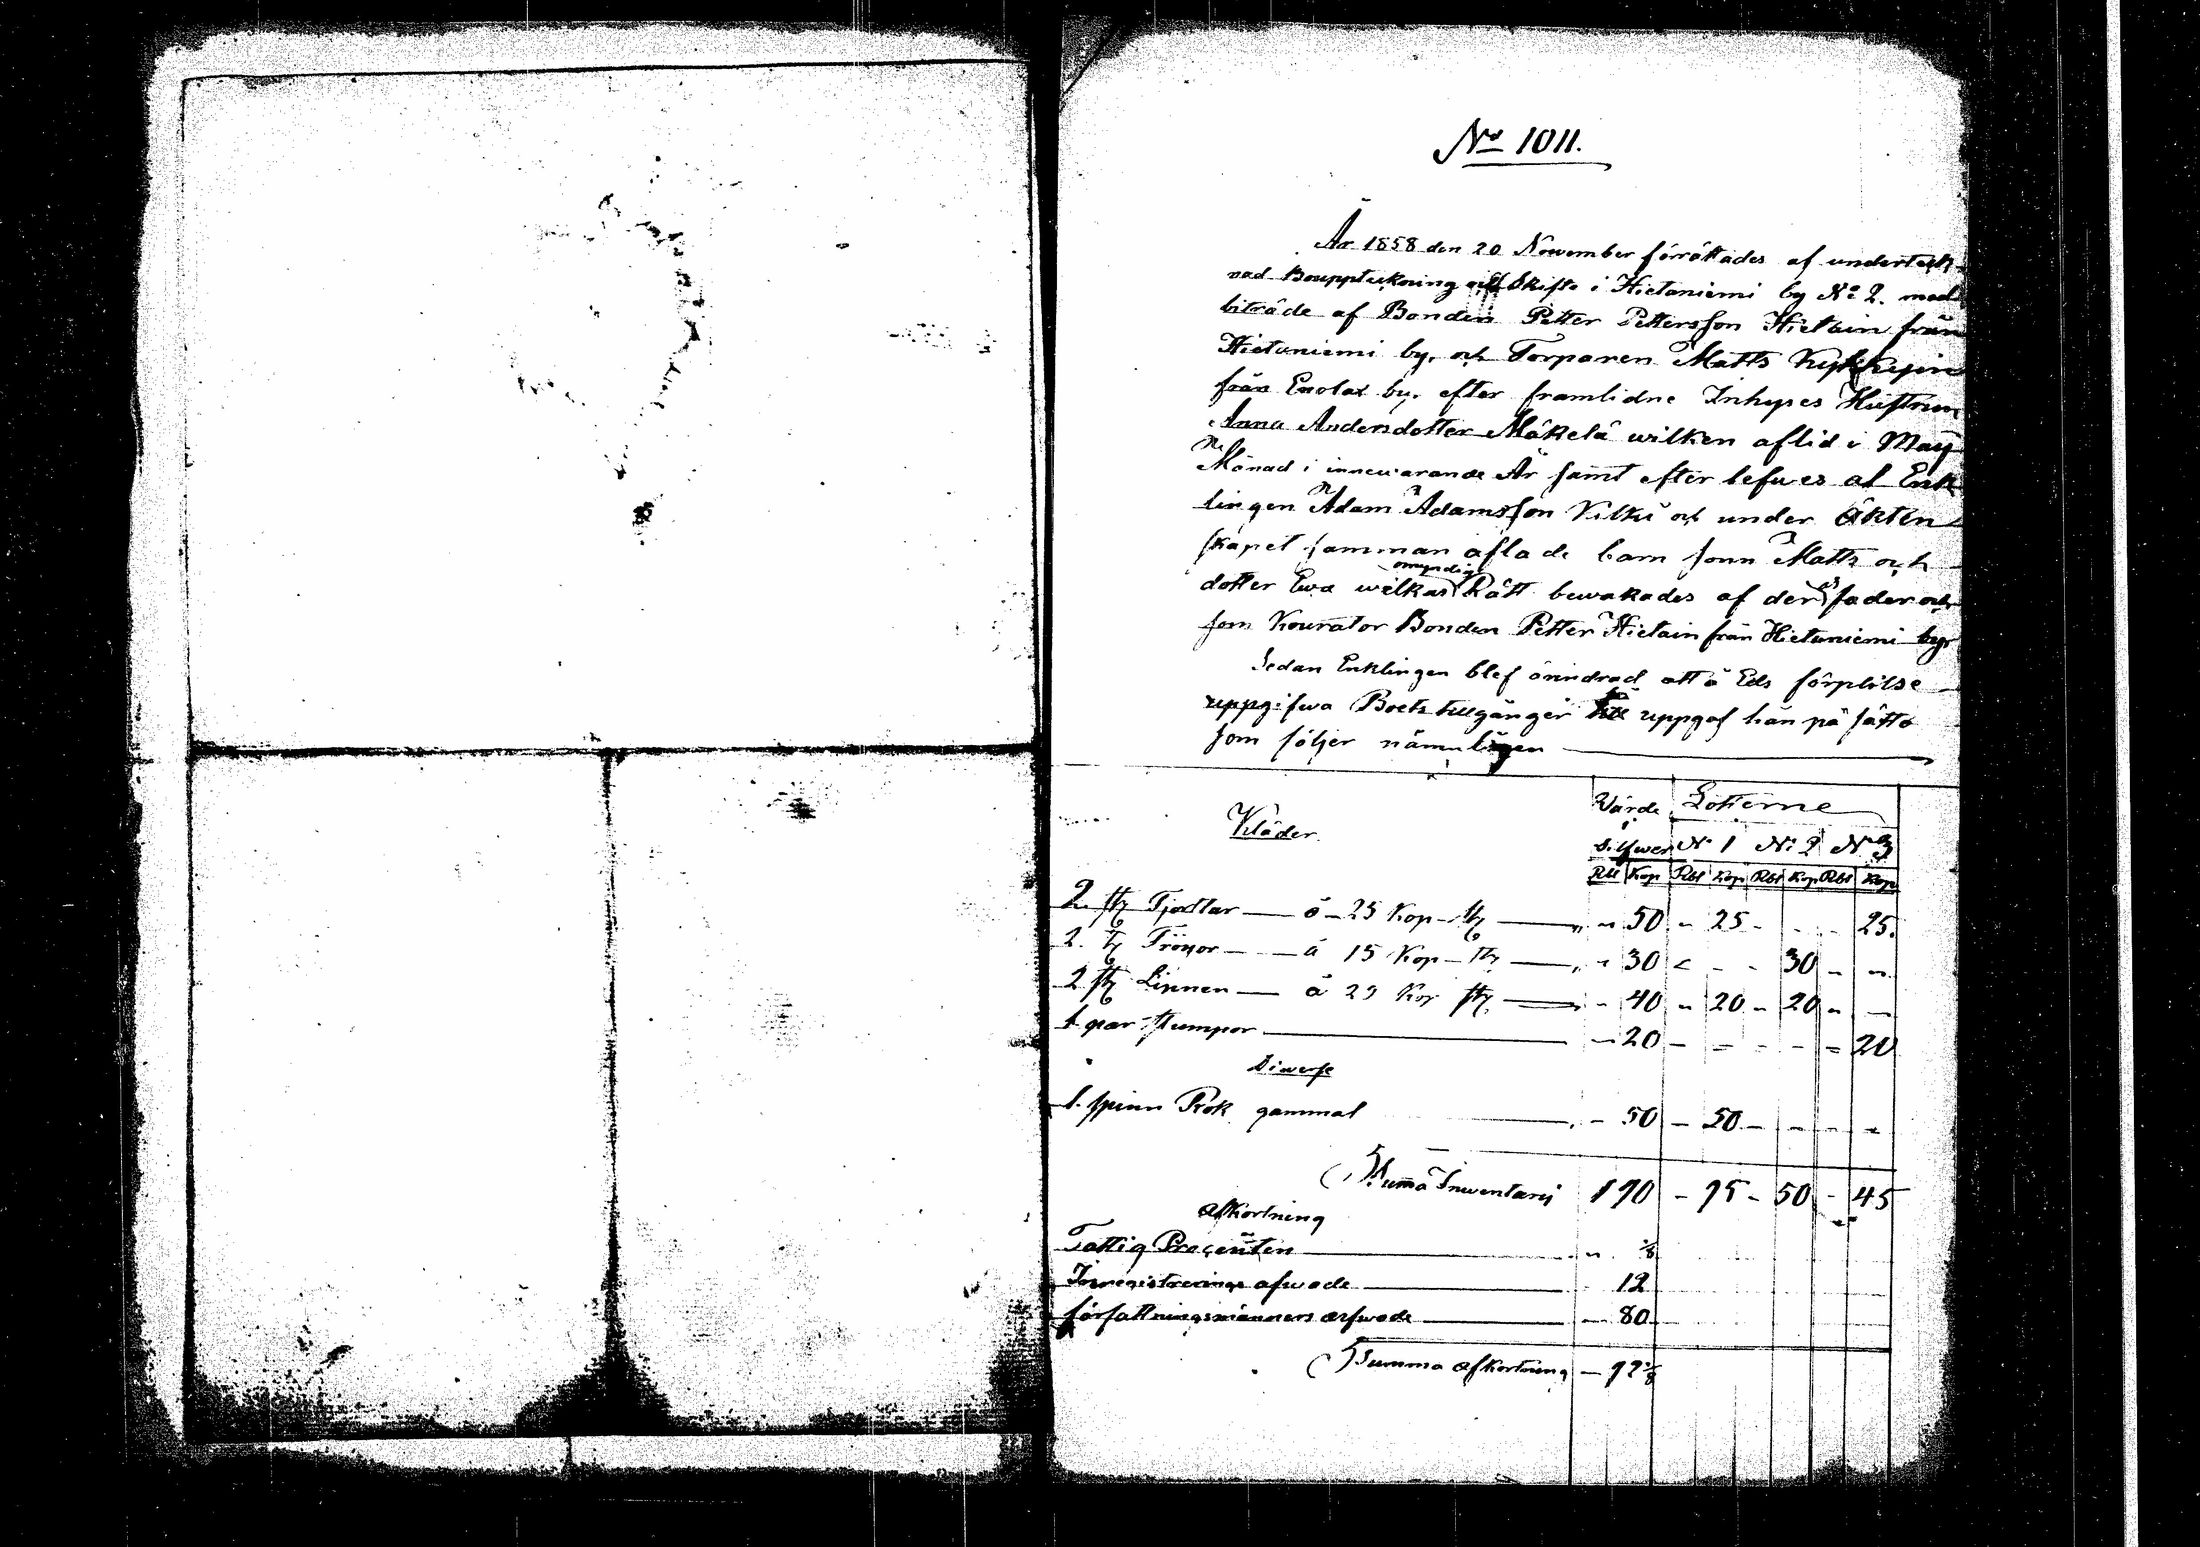 No 1011.
År 1858 den 20 November förrättades af underteck-
nad Bouppteckning och Skifte i Hietaniemi by No 2. med
biträde af Bonden Petter Pettersson Hietain från
Hietaniemi by, och Torparen Matts
från Enolax by. efter framlidne Inhyses Hustrun
Anna Andersdotter Mäkelä wilken aflid i Maij
Månad i innewarande År samt efter lefwes al Enk
lingen Adam Adamsson Kilki och under äkten
skapet samman aflade barn sonn Matts och
dotter Ewa wilkas omyndig Rätt bewakades af deras fader och
som Kourator Bonden Petter Hietain från Hietaniemi by.
Sedan Enklingen blef önindrad att å Eds förplitse
uppgifwa Boets tillgånger uppgaf han på sätt
som följer nämnligen
Kläder Värde i Silfwer Lotterne
No 1 No 2 No 3
Rbl Kop Rbl Kop Rbl Kop Rbl Kop
2 st Tjortlar — á 25 Kop st — " " 50 - 25 - - - 25.
2. st Tröyor — á 15 Kop st — " 30 - - 30 - -
2 st Linnen — á 20 Kop st — - 40 - 20 - 20 - —
1 par strumpor — - 20 - - - - - 20
Diwerse
1. spinn Rok gammal — - 50 - 50 - - - -
Summa Inwentarij 190 - 95 - 50 - 45
Afkortning
Fattig Procenten — " 1/8
Inregistrerings afwode — 12
författningsmänners arfwode — - 80
Summa afkortning — 92 1/8